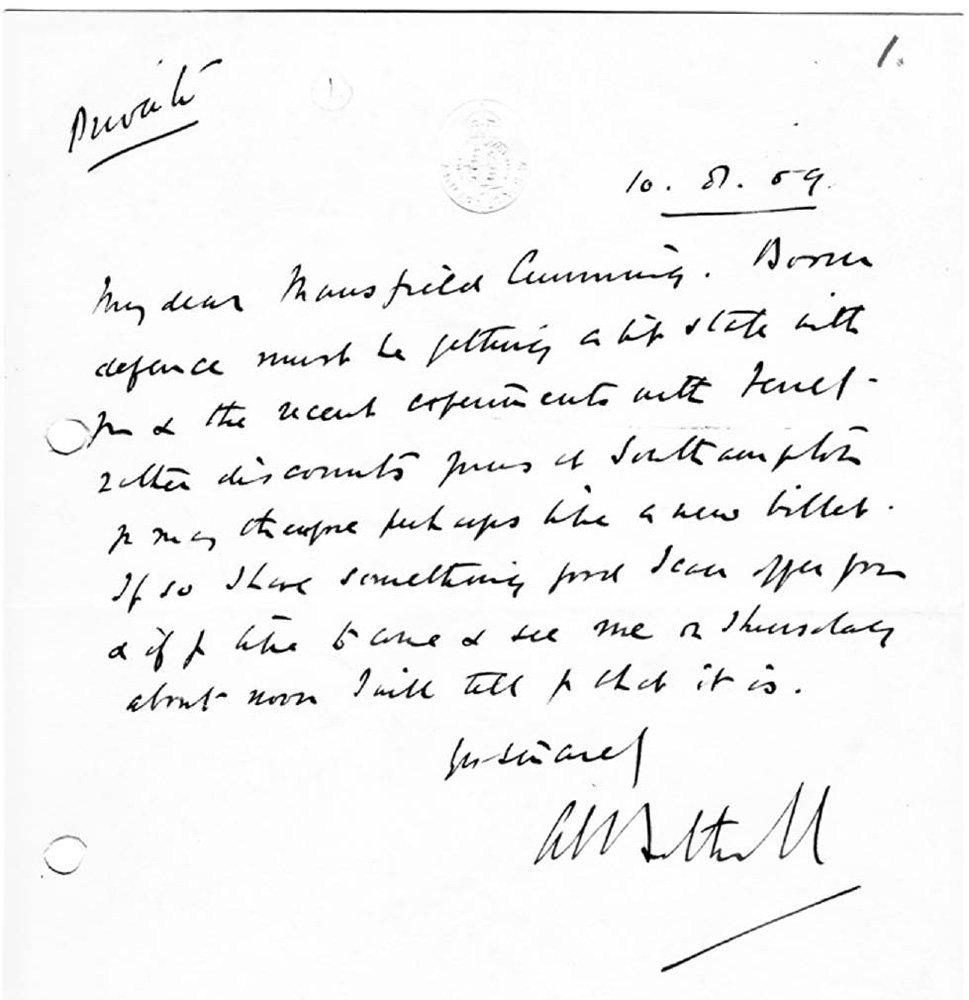 1.
Private
10. 8. 09.
My dear Mansfield Cumming. Boom
defence must be getting a bit stale with
you & the recent experiments with Ferret
rather discounts yours at Southampton
You may therefore perhaps like a new billet.
If so I have something good I can offer you
& if you like to come & see me on Thursday
about noon I will tell you what it is.
Yrs sincerely
A E Bethell